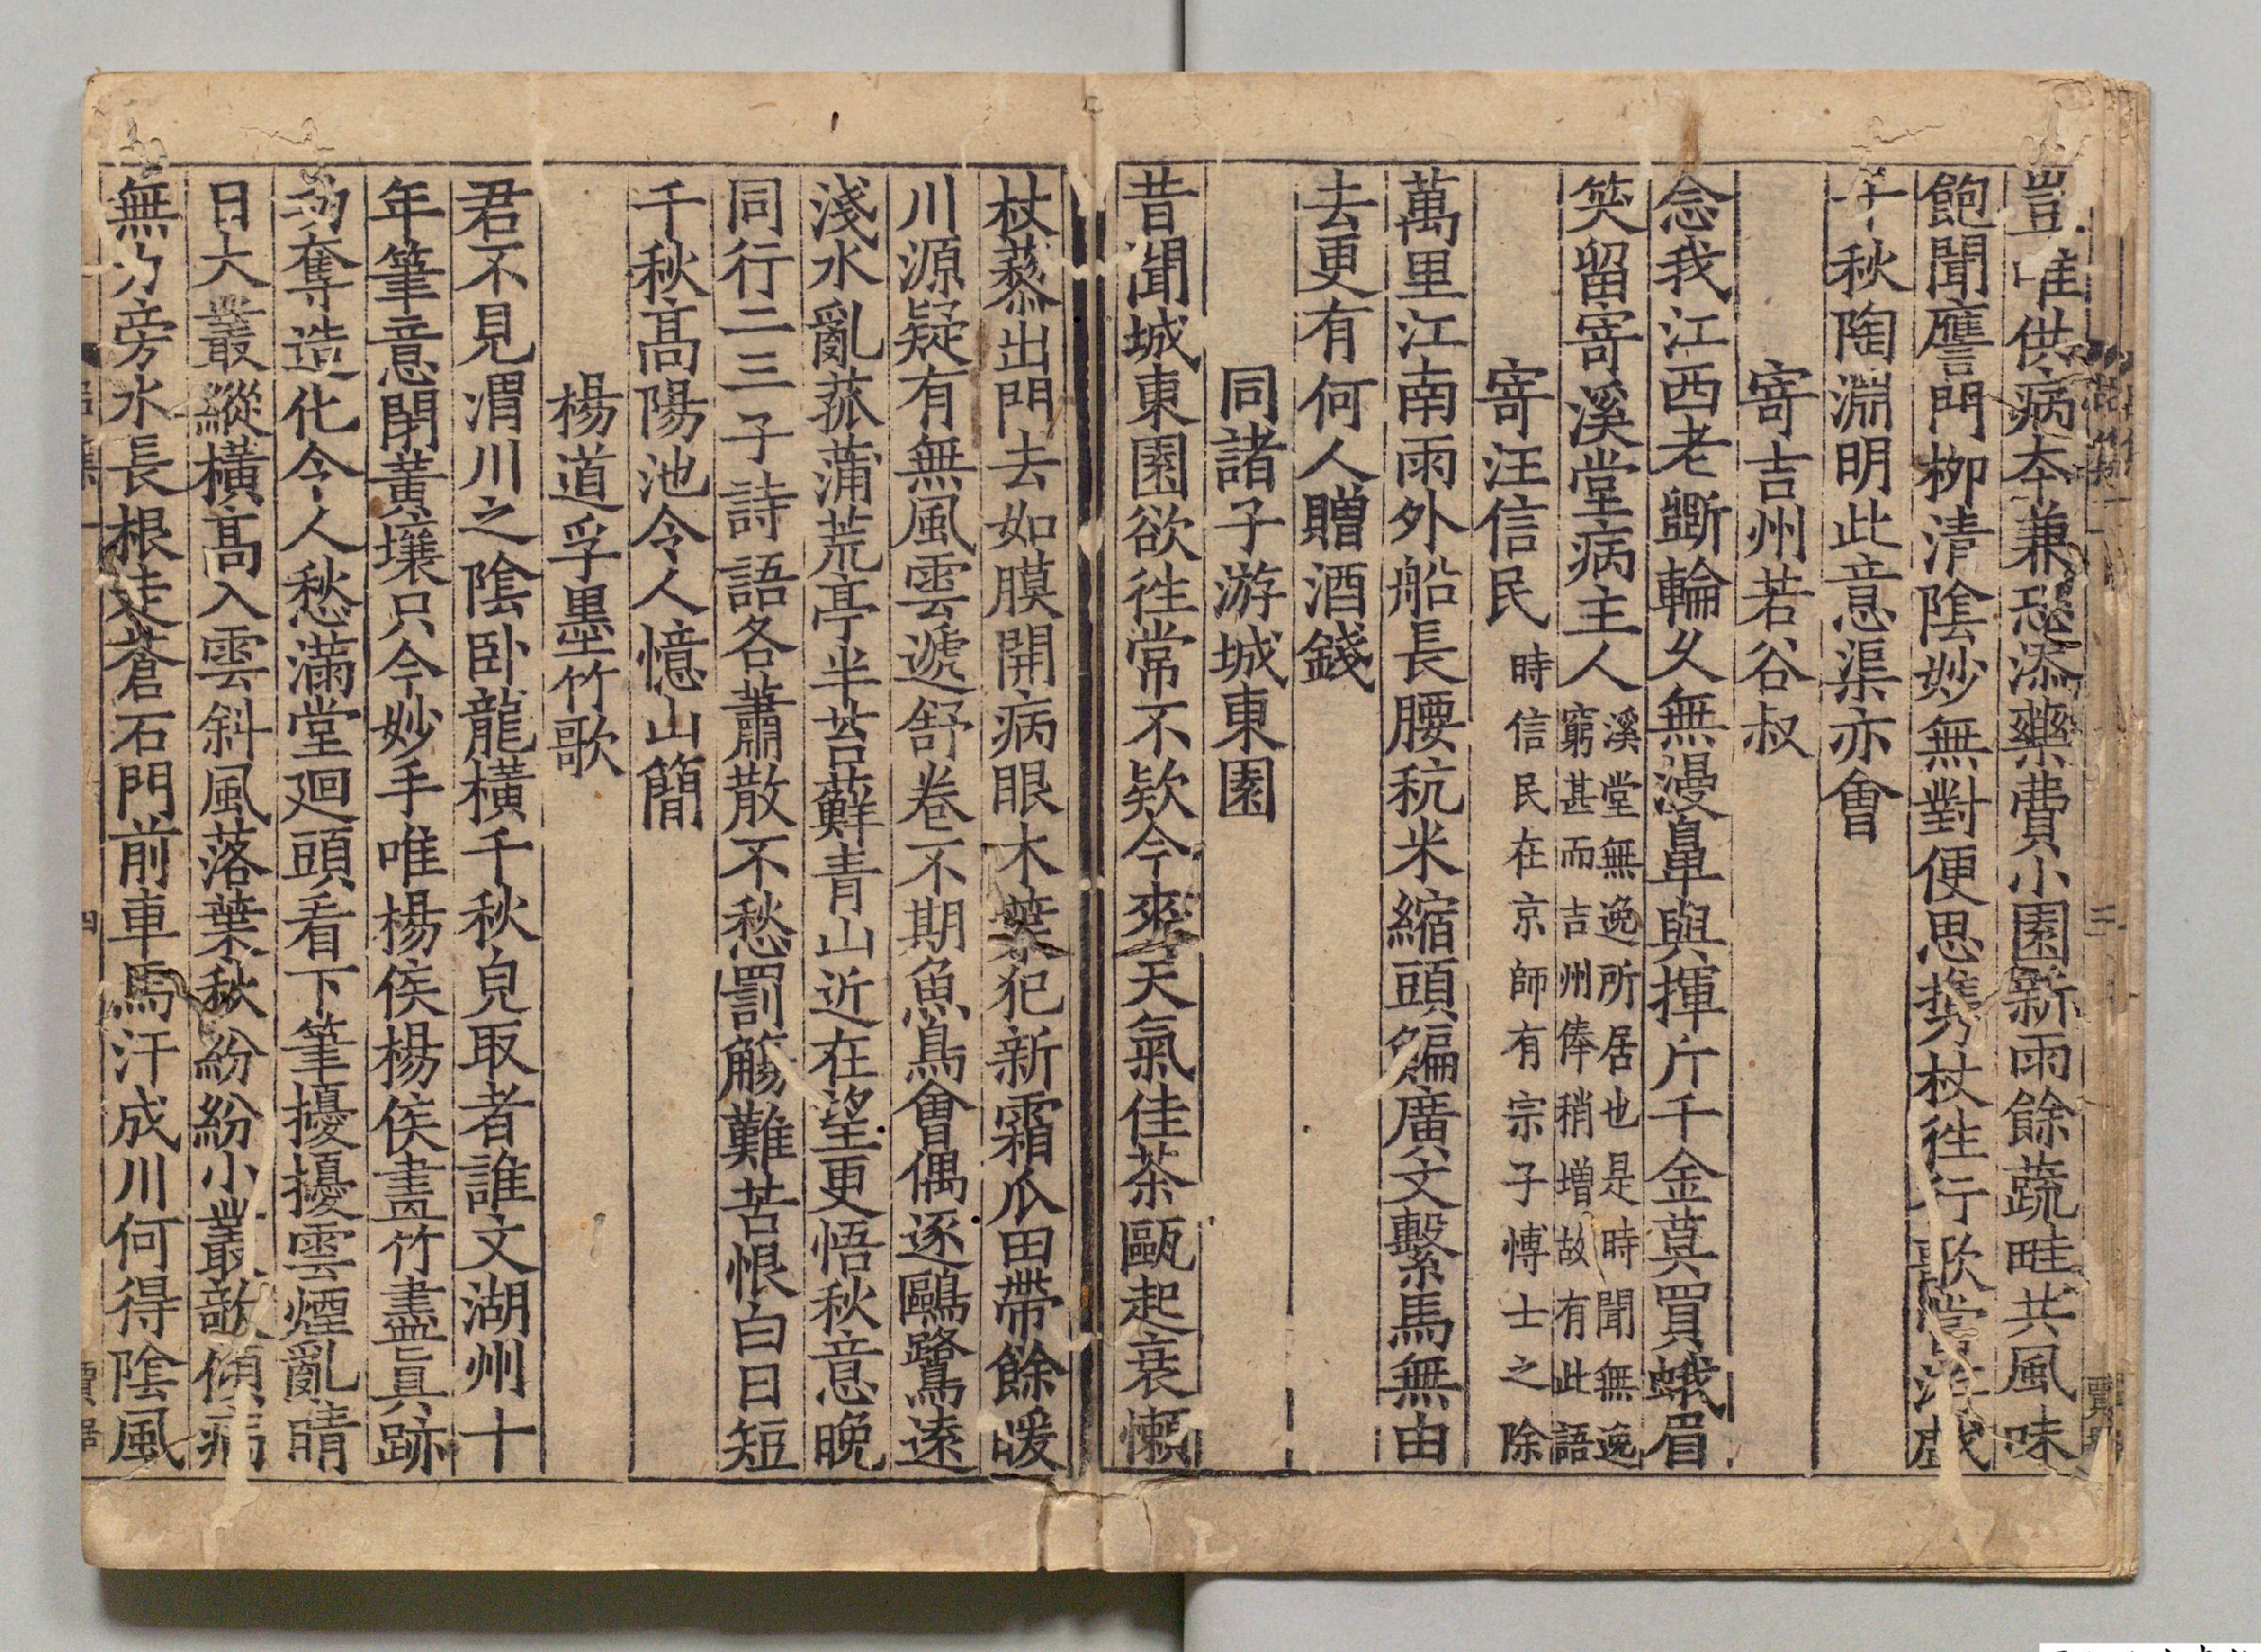 豈唯供病夲兼恐添藥費小園新雨餘蔬畦共風味
飽聞譍門栁清隂妙無對便思携杖徃行歌
千秋陶淵明此意渠亦會
寄吉州若谷叔
念我江西老斵輪乆無漫鼻與揮斤千金莫買蛾眉
笑留寄溪堂病主人溪堂無逸所居也是時聞無逸
窮甚而吉州俸稍増故有此語
寄汪信民時信民在京師有宗子愽士之除
萬里江南雨外船長腰秔米縮頭鯿廣文繫馬無由
去更有何人贈酒錢
同諸子游城東園
昔聞城東園欲徃常不欵今來天氣佳茶甌起衰懶
杖藜出門去如膜開病眼木葉犯新霜瓜田帶餘暖
川源疑有無風雲遞舒卷不期魚鳥會偶逐鷗鷺逺
淺水亂菰蒲荒亭半苔蘚青山近在望更悟秋意晚
同行二三子詩語各蕭散不愁罰觴難苦恨白日短
千秋髙陽池令人憶山簡
楊道孚墨竹歌
君不見渭川之隂卧龍橫千秋皃取者誰文湖州十
年筆意閉黃壤只今妙手唯楊侯楊侯畫竹盡真跡
巧奪造化令人愁滿堂廻頭看下筆擾擾雲煙亂晴
日大叢縱橫髙入雲斜風落葉秋紛紛小叢敧傾病
無力旁水長根走蒼石門前車馬汗成川何得隂風